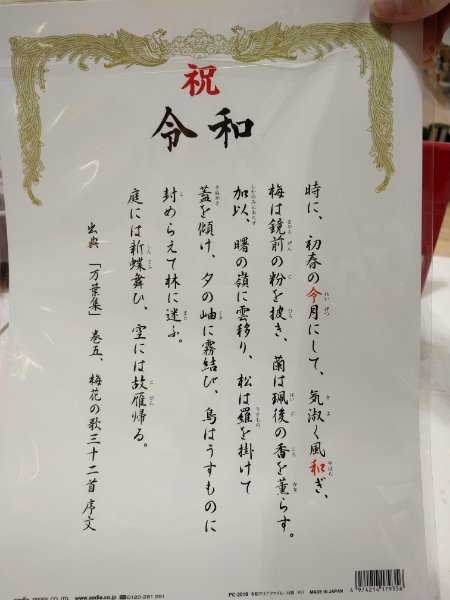 祝
令和
時に、初春の令月にして、気淑く風和ぎ、
梅は鏡前の粉を披き、蘭は珮後の香を薫らす。
加以、曙の嶺に雲移り、松は羅を掛けて
蓋を傾け、夕の岫に霧結び、鳥はうすものに
封めらえて林に迷ふ。
庭には新蝶舞ひ、空には故雁帰る。
出典 「万葉集」 巻五、梅花の歌三十二首序文
www.sedia.co.jp
PC-2019 令和クリアファイル MADE IN JAPAN
4 974214 179356